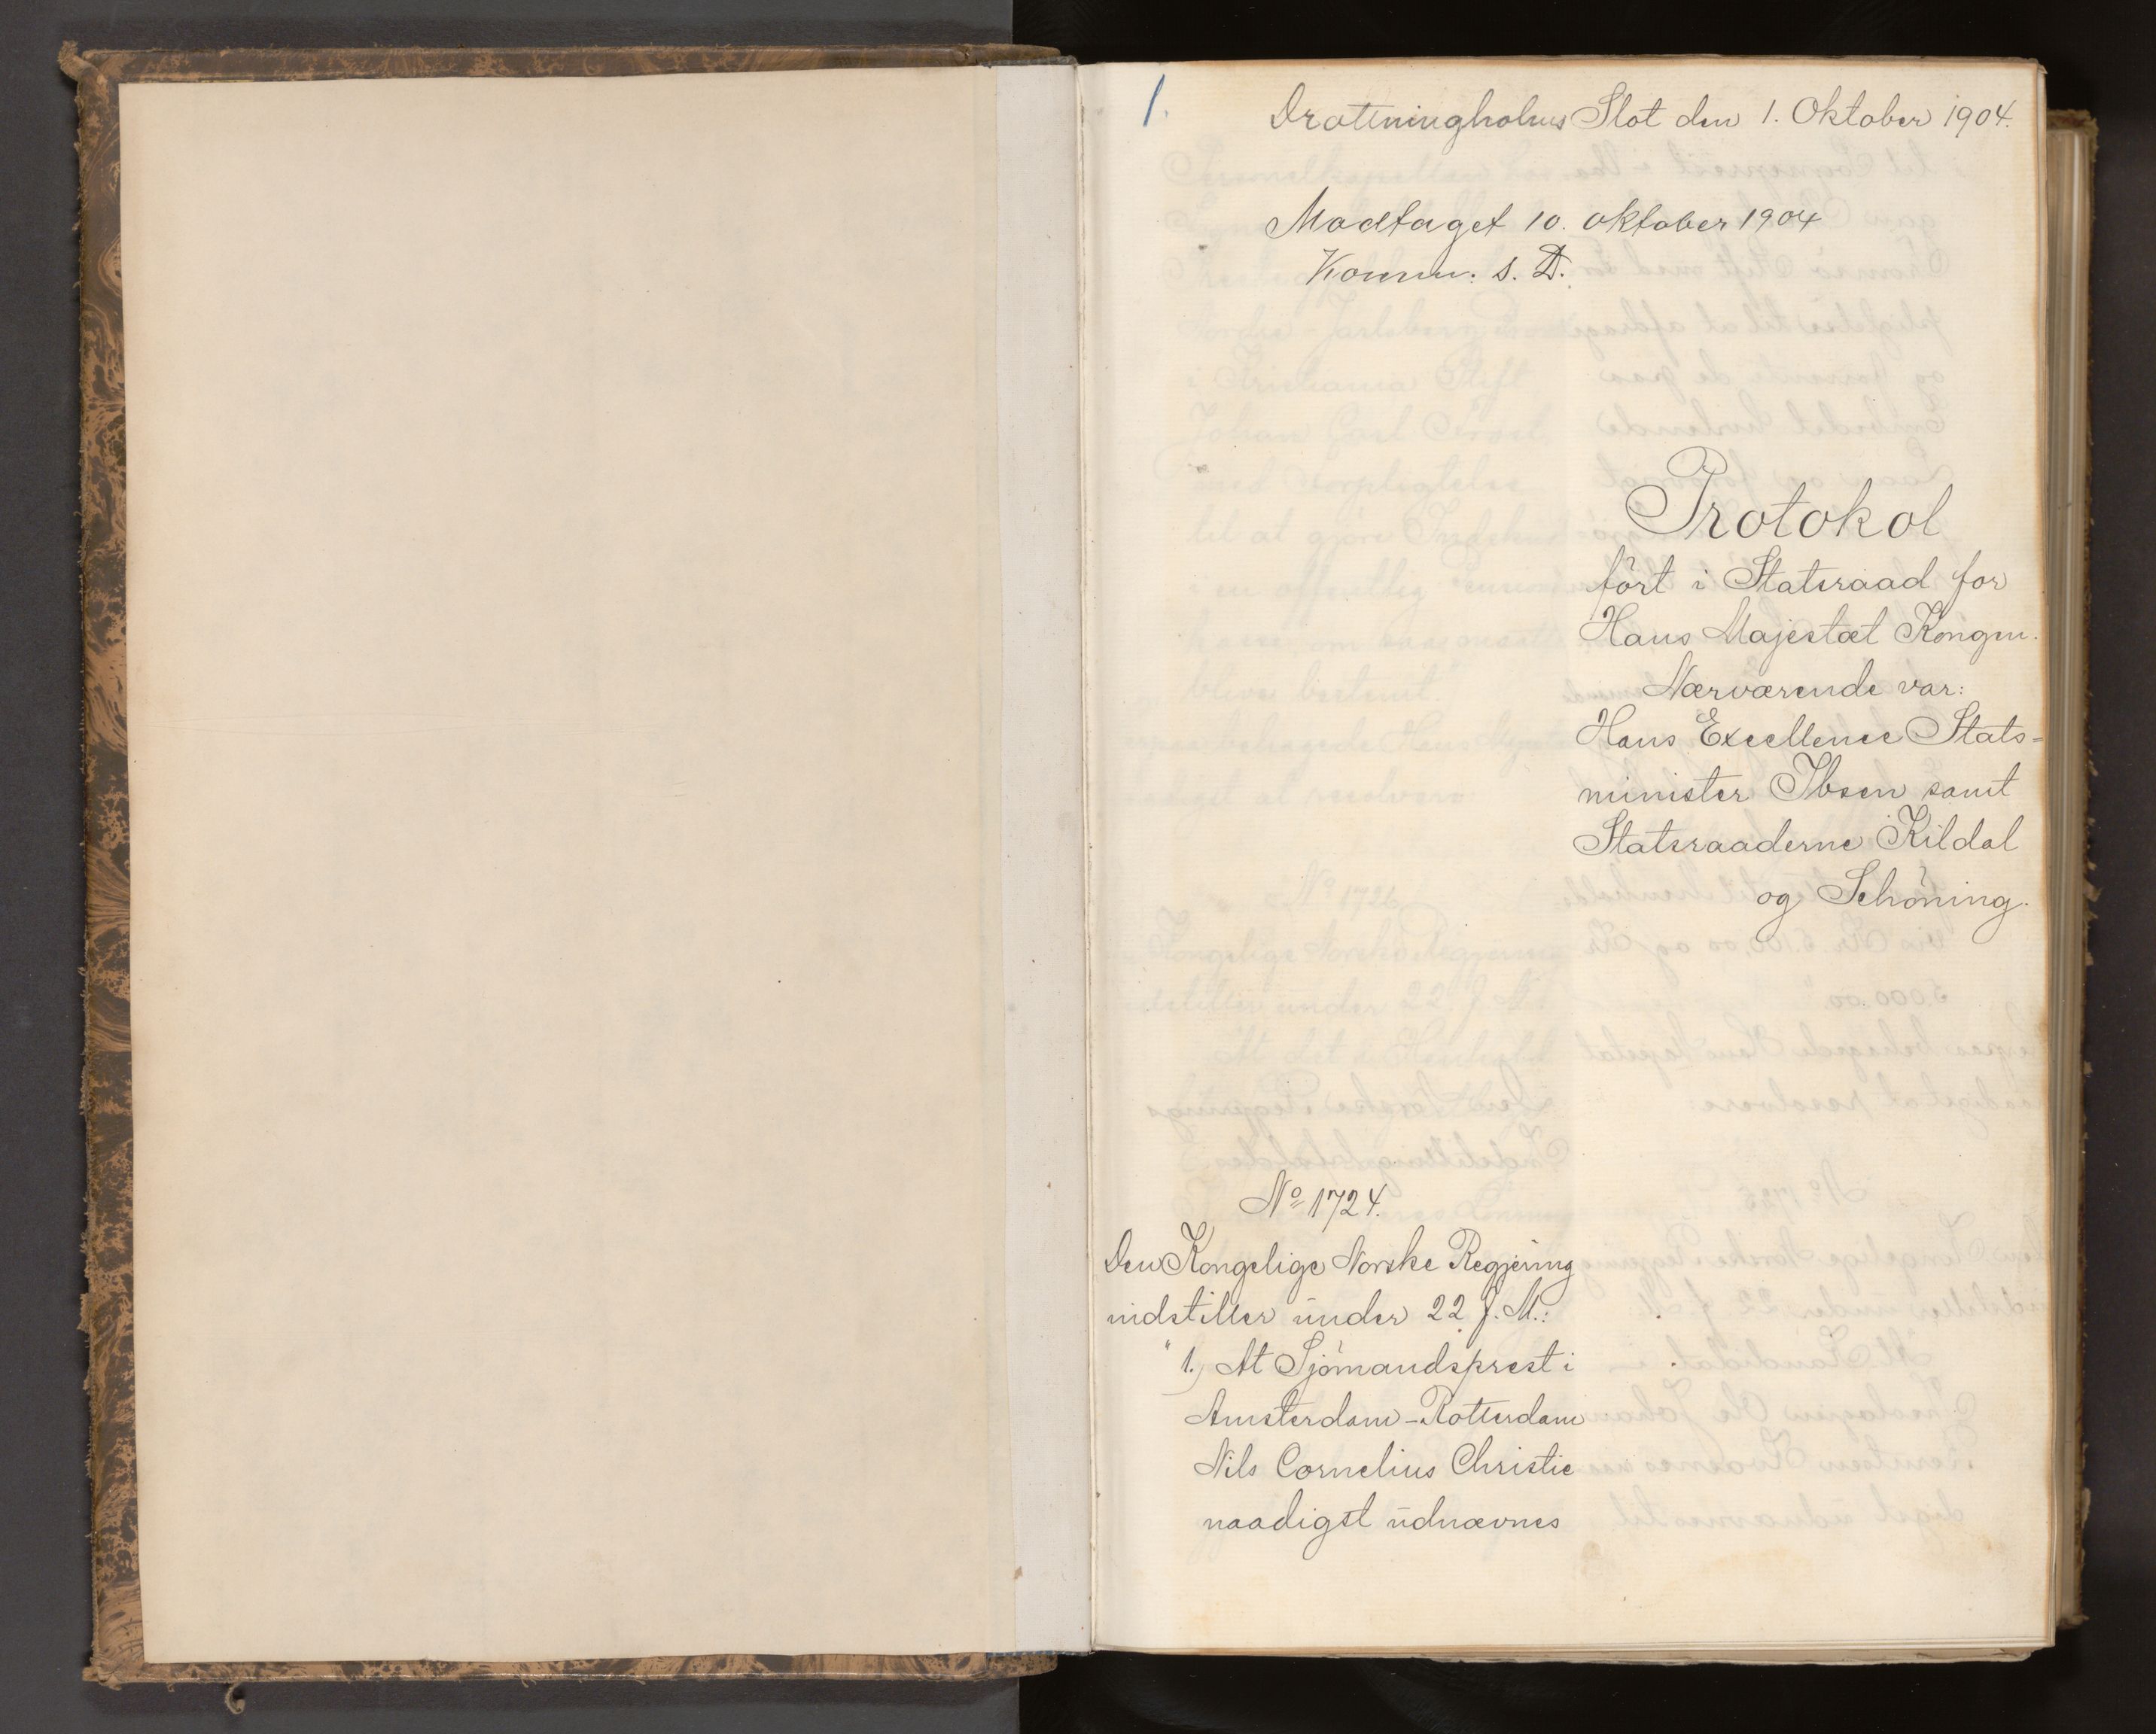 1.
Drottningholms Slot den 1. Oktober 1904.
Modtaget 10. oktober 1904
Komm. s. D.
Protokol
ført i Statsraad for
Hans Majestæt Kongen.
Nærværende var:
Hans Excellence Stats=
minister Ibsen samt
Statsraaderne Kildal
og Schöning.
No 1724.
Den Kongelige Norske Regjering
indstiller under 22 f. M.:
"1.) At Sjømandsprest i
Amsterdam-Rotterdam
Nils Cornelius Christie
naadigst udnævnes